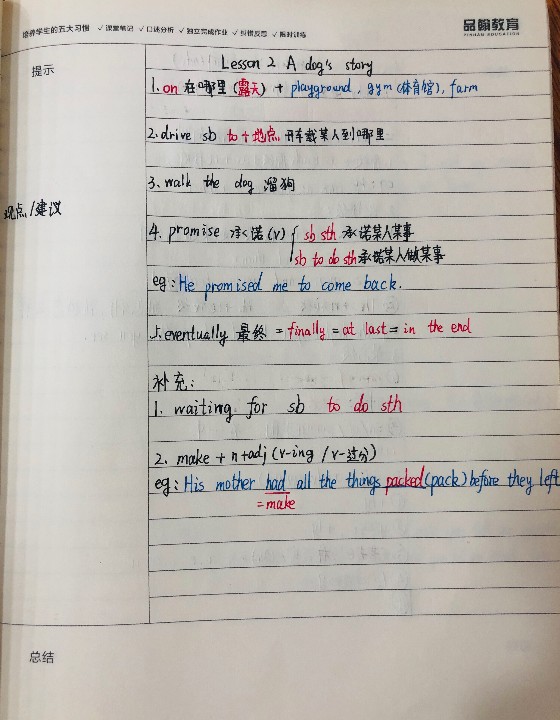 培养学生的五大习惯 ✓课堂笔记 ✓口述分析 ✓独立完成作业 ✓纠错反思 ✓限时训练
品翰教育
PINHAN EDUCATION
提示
Lesson 2 A dog's story
1. on 在哪里(露天) + playground, gym(体育馆), farm
2. drive sb to + 地点 开车载某人到哪里
3. walk the dog 溜狗
观点/建议
4. promise 承诺(v) { sb sth 承诺某人某事
sb to do sth 承诺某人做某事
eg: He promised me to come back.
5. eventually 最终 = finally = at last = in the end
补充:
1. waiting for sb to do sth
2. make + n + adj (v-ing / v-过分)
eg: His mother had all the things packed(pack) before they left
= make
总结